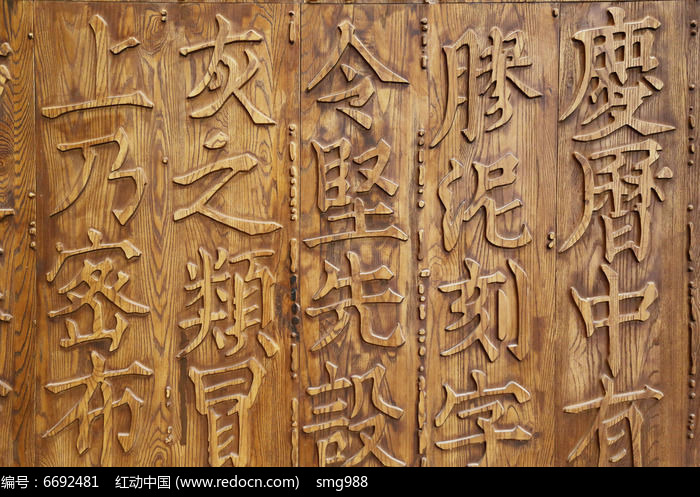 慶曆中有
膠泥刻字
令堅先設
灰之類冒
上乃密布
编号：6692481 红动中国 (www.redocn.com) smg988